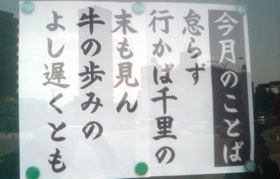 今月のことば
怠らず
行かば千里の
末も見ん
牛の歩みの
よし遅くとも